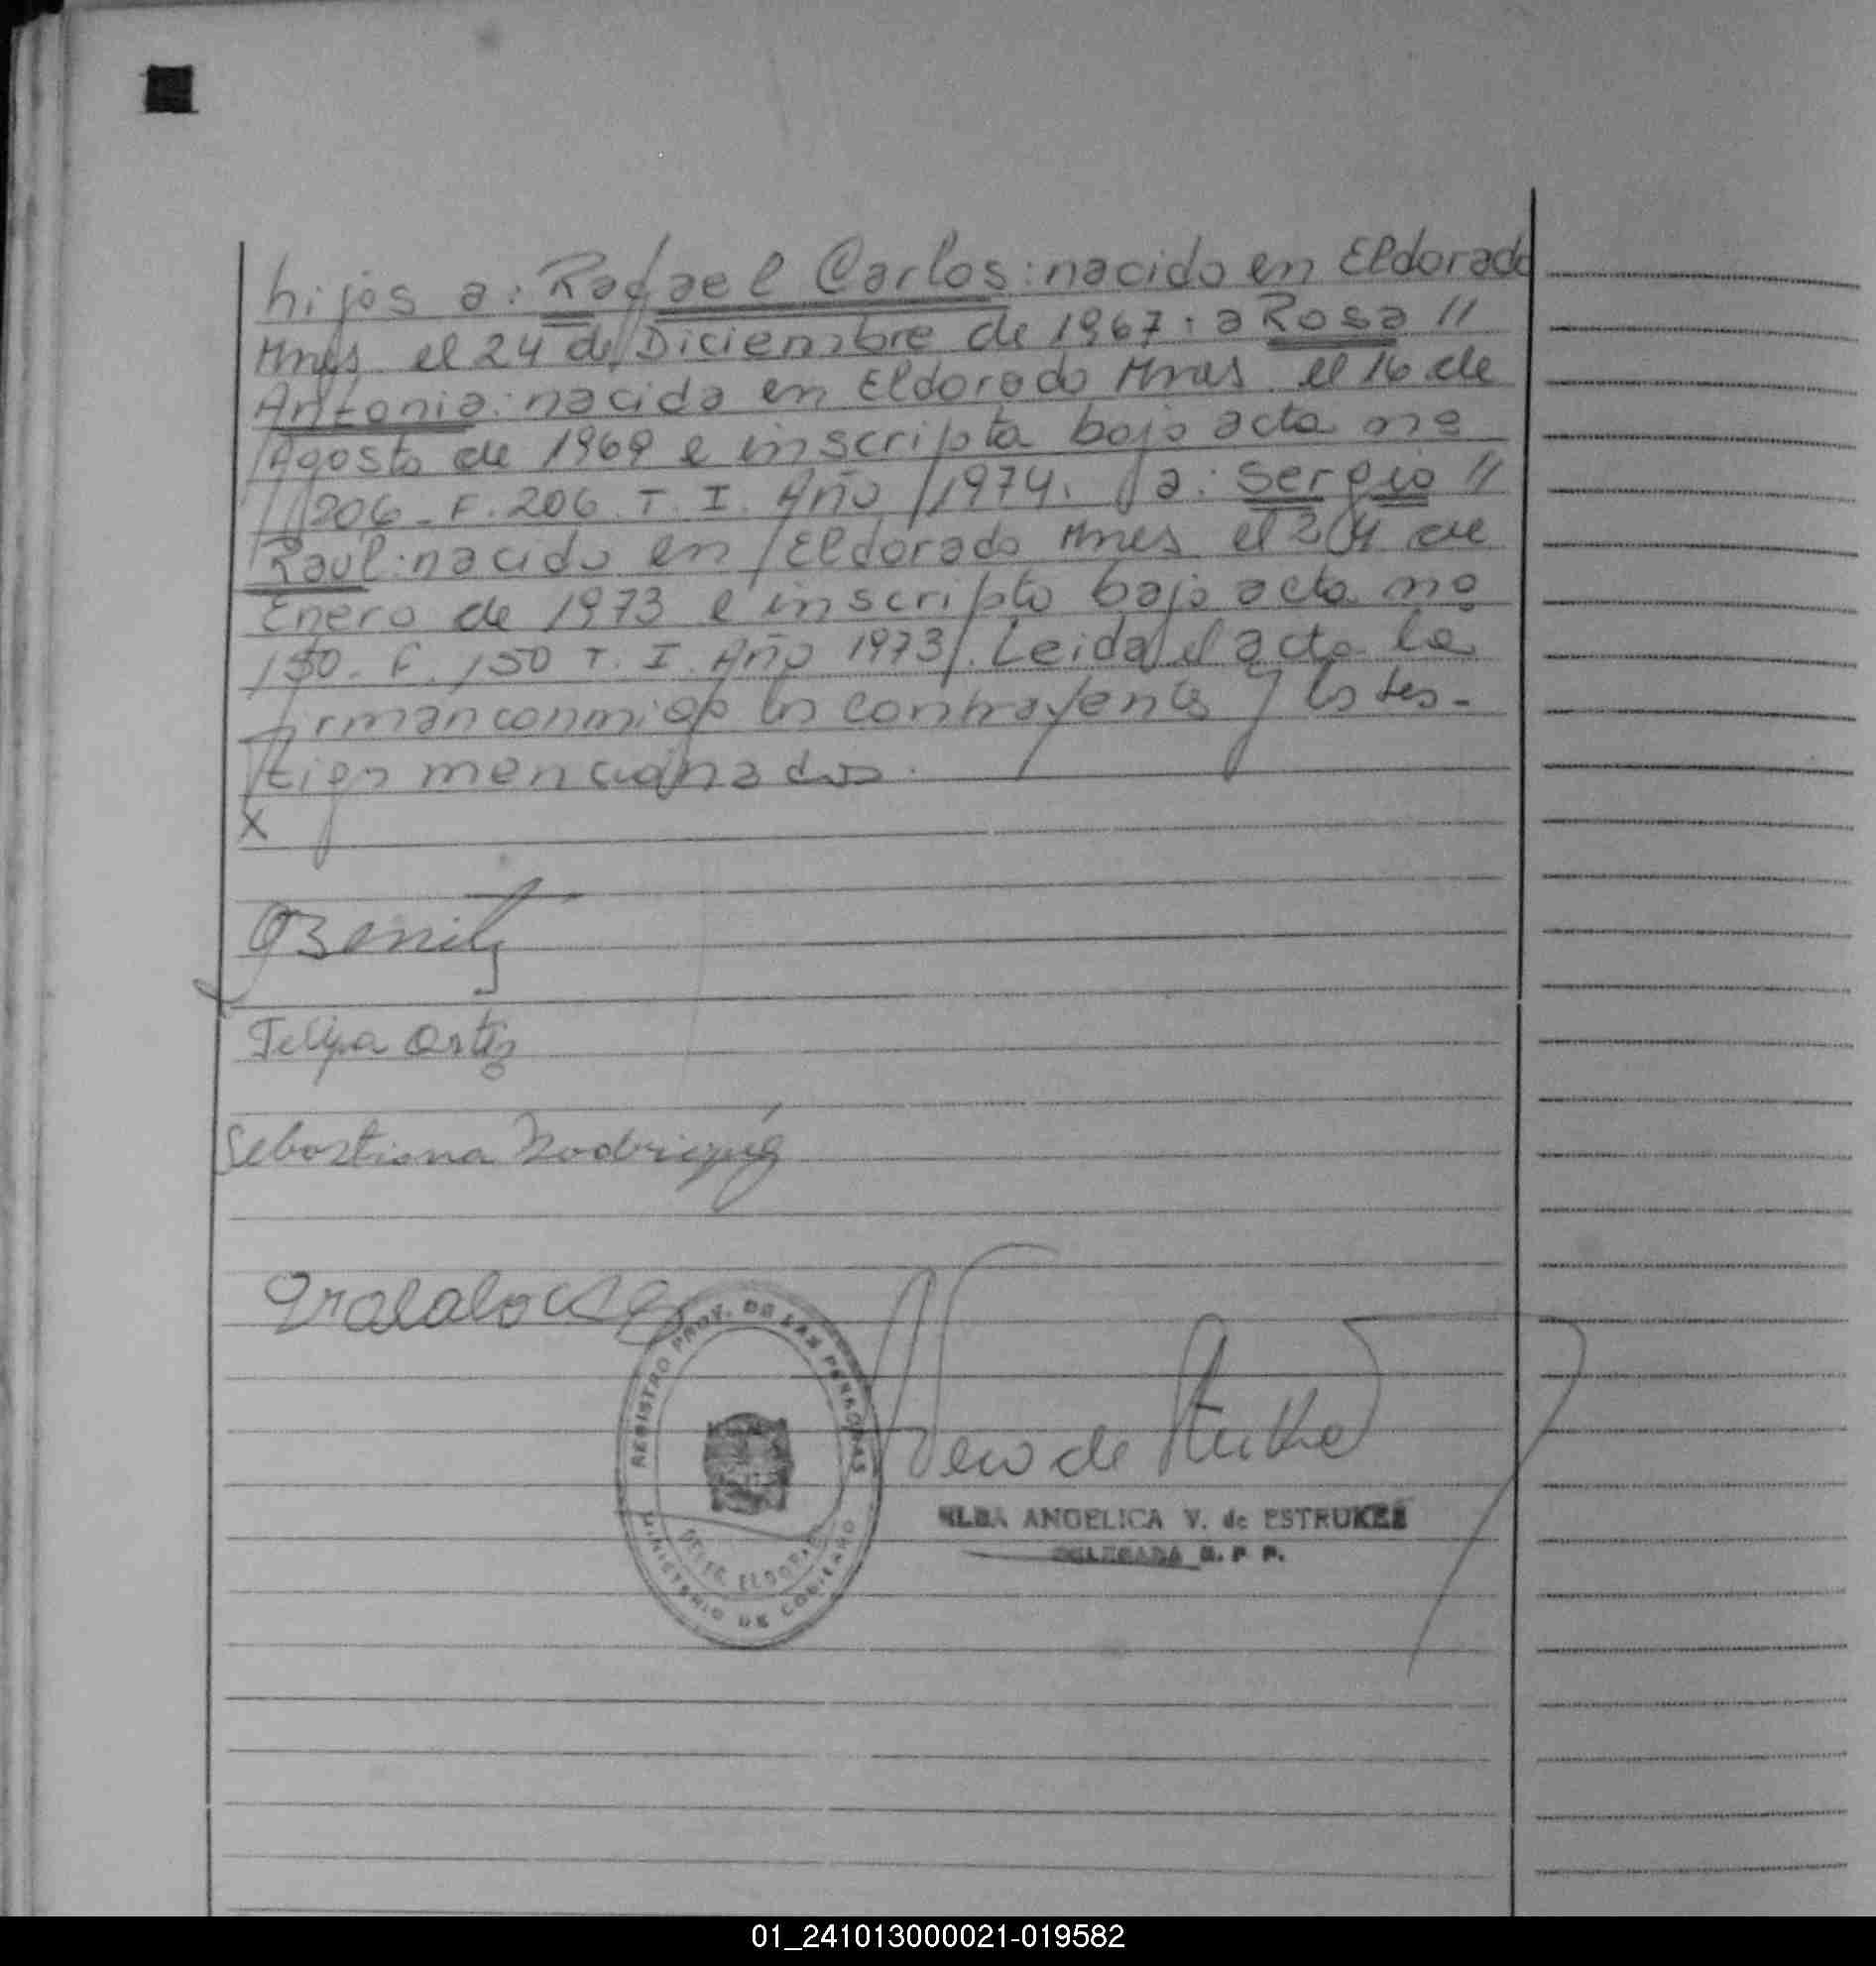 hijos a: Rafael Carlos: nacido en Eldorado
Mnes. el 24 de Diciembre de 1967. a Rosa //
Antonia: nacida en Eldorado Mnes. el 16 de
Agosto de 1969 e inscripta bajo acta nº
206 - F. 206. T. I. Año 1974. a: Sergio //
Raul: nacido en Eldorado Mnes el 24 de
Enero de 1973 e inscripto bajo acta nº
150. F. 150 T. I. Año 1973. Leida el acta la
firman conmigo los contrayentes y los tes-
tigos mencionados.
X
Benitz
Felipa Ortiz
Sebastiana Rodriguez
REGISTRO PROV. DE LAS PERSONAS
DELEG. ELDORADO
MINISTERIO DE GOBIERNO
ANGELICA V. de ESTRUKEL
DELEGADA R. P. P.
01_241013000021-019582